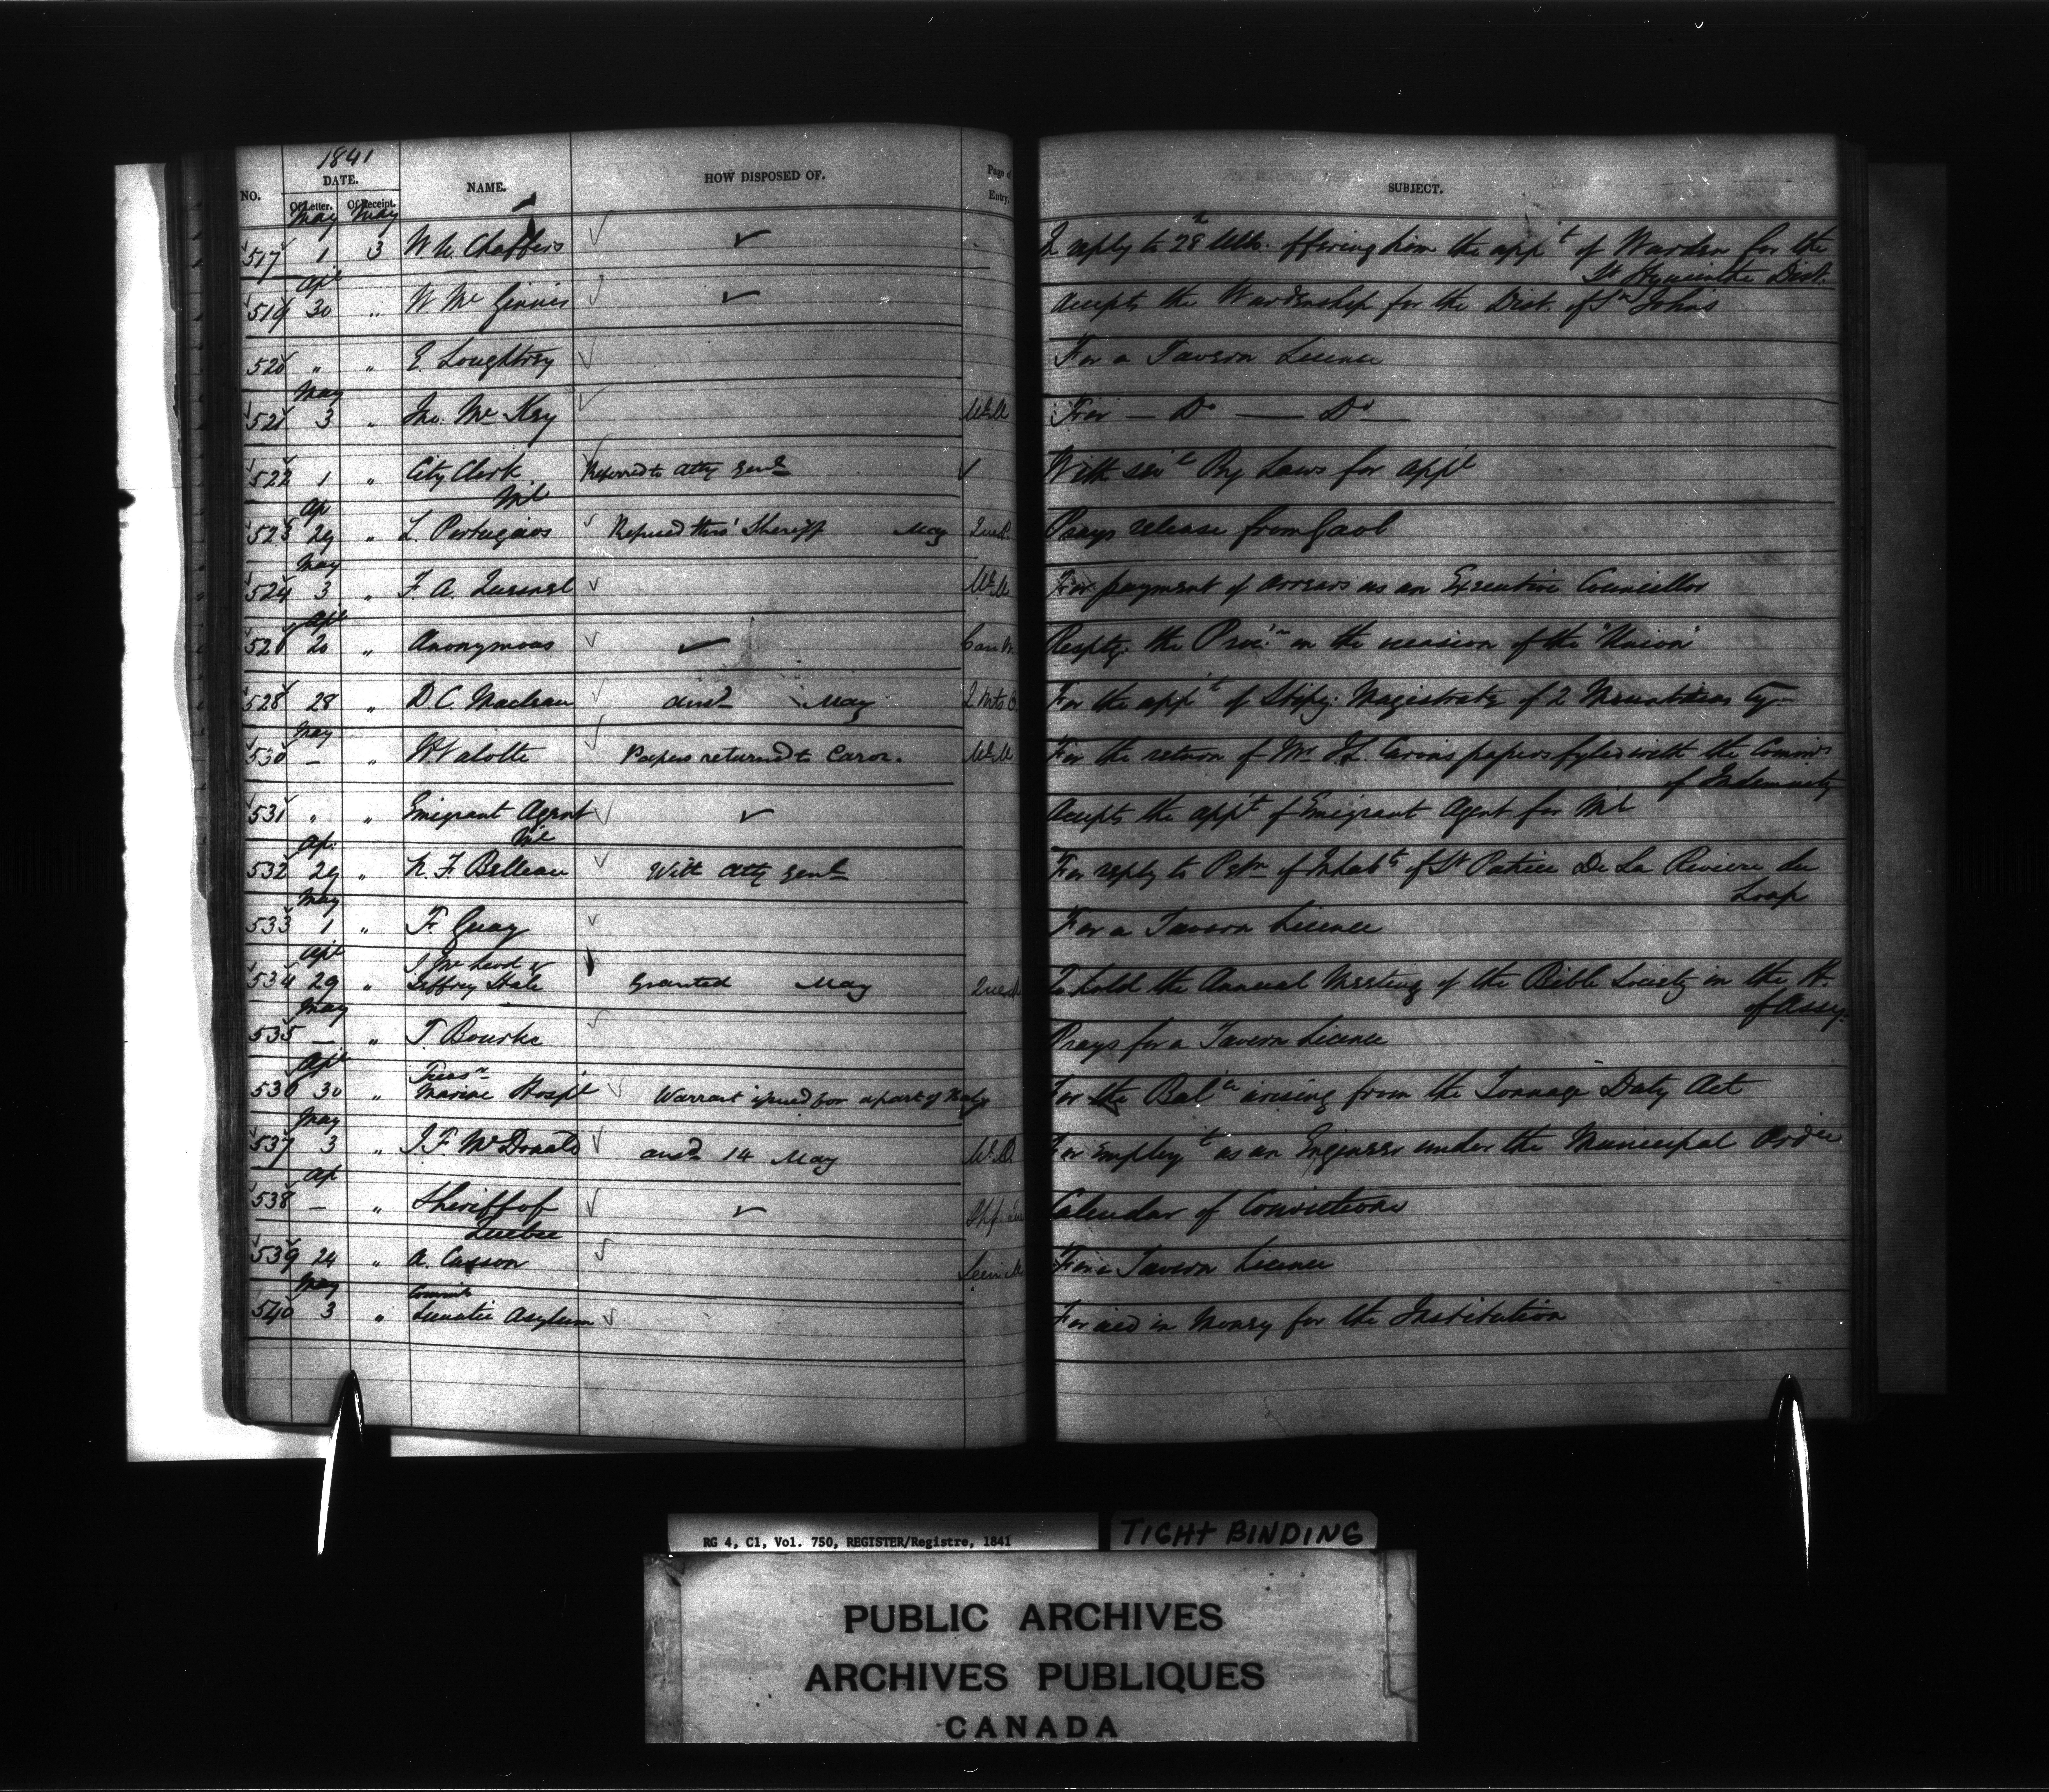 1841
NO. DATE. NAME. HOW DISPOSED OF. Page of Entry. SUBJECT.
Of Letter. Of Receipt.
May May
517 1 3 W. U. Chaffers In reply to 28th Ulto. offering him the appt of Warden for the
St Hyacinthe Dist.
Apl
519 30 " W Mc Ginnis Accepts the Wardenship for the Dist. of St Johns
520 " " E. Loughtrey For a Tavern Licence
May
521 3 " Jno. Mc Kay For — Do — Do —
522 1 " City Clerk Referred to Atty Genl With sevl By Laws for appl
Ml
Ap
523 29 " L. Portugais Refused thro' Sheriff May Prays release from Gaol
May
524 3 " F. A. Quesnel For payment of arrears as an Executive Councillor
Apl
20 " Anonymous Respg. the Procn on the occasion of the "Union"
528 28 " D C Maclean ansd May 2 Mts For the appt of Stipy. Magistrate of 2 Mountains Cy.
May
530 — " Papers returned to Caron. For the return of Mr Carons papers fyled with the Commrs
of Indemnity
531 " " Emigrant Agent Accepts the appt of Emigrant Agent for Ml
Ml
Ap.
532 29 " N. F. Belleau With Atty Genl For reply to Petn of Inhabts of St Patrice De La Riviere du
Loup
May
533 1 " F. Guay For a Tavern Licence
Apl
J. Mc Leod &
534 29 " Jeffrey Hale Granted May To hold the Annual Meeting of the Bible Society in the H.
of Assy.
May
535 — " T Bourke Prays for a Tavern Licence
Apl
Treasr
536 30 " Marine Hospl Warrant issued for a part of For the Balce arising from the Tonnage Duty Act
May
537 3 " J. F. McDonald ansd 14 May For employt as an Engineer under the Municipal Ordce
Ap
538 — " Sheriff of Calendar of Convictions
Quebec
539 24 " A. Casson For a Tavern Licence
May
Commrs
540 3 " Lunatic Asylum For aid in Money for the Institution
RG 4, C1, Vol. 750, REGISTER/Registre, 1841
TIGHT BINDING
PUBLIC ARCHIVES
ARCHIVES PUBLIQUES
CANADA